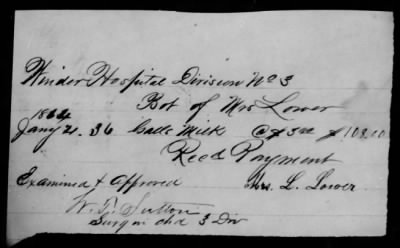 Winder Hospital Division No 3
Bot of Mrs Lower
1864
Jany 21. 36 Galls Milk @ $3.00 $108.00
Recd Payment
Examined & Approved Mrs. L. Lower
W. T. Sutton
Surg in chd 3 Div